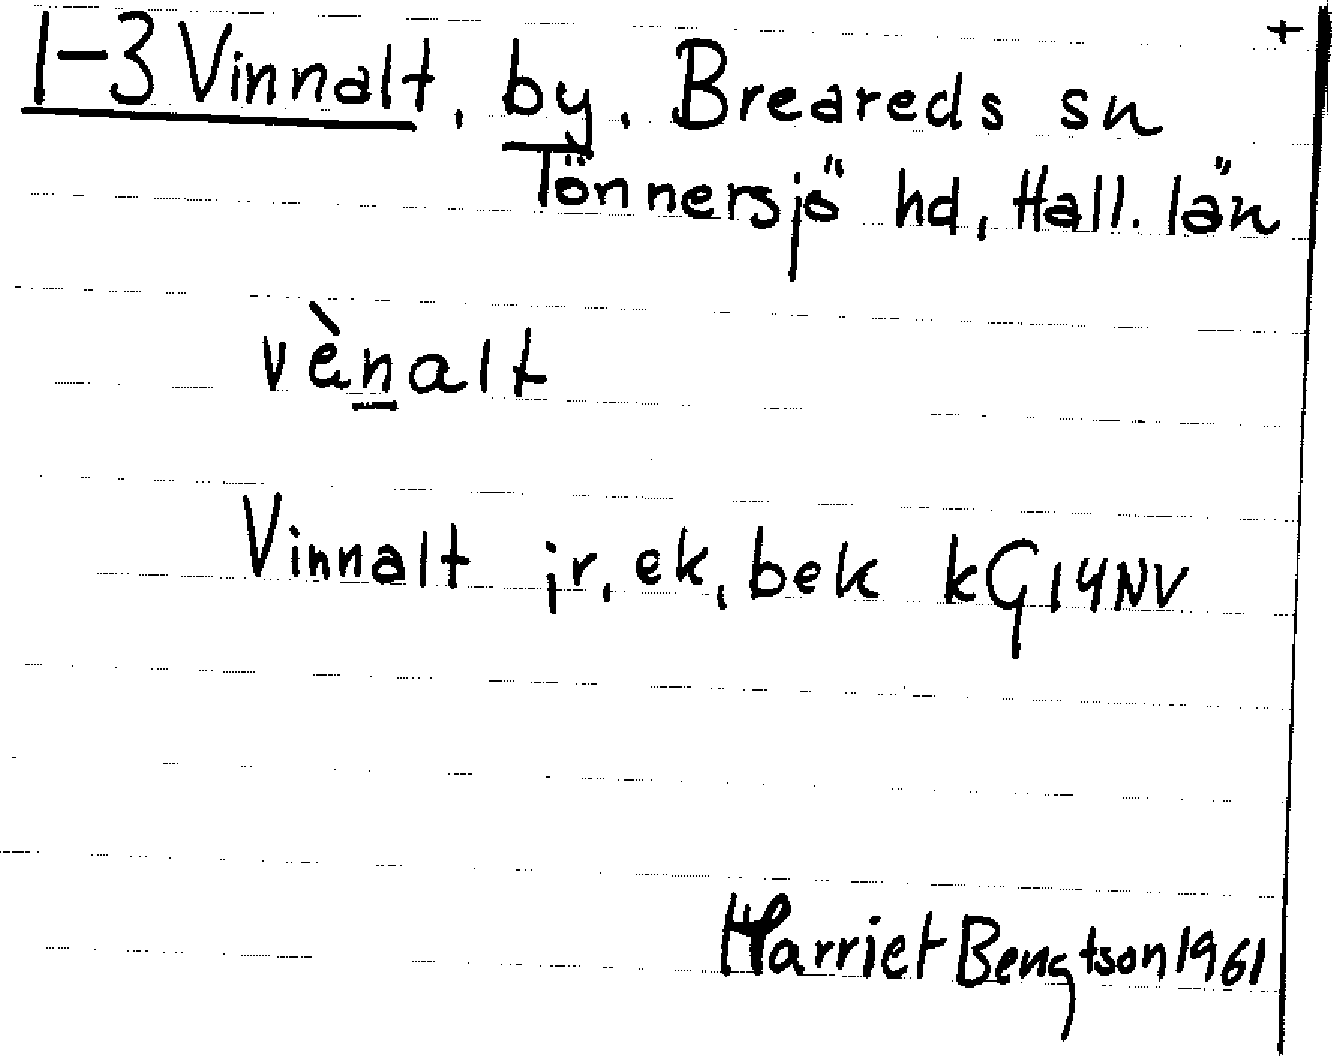 +
1-3 Vinnalt, by, Breareds sn
Tönnersjö hd, Hall. län
vènalt
Vinnalt jr, ek, bek kG14NV
Harriet Bengtson 1961